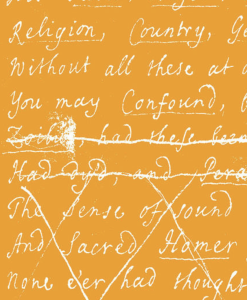 Religion, Country,
Without all these at
You may Confound,
had these been
Had dy'd, and
The Sense of sound
And Sacred Homer
None e'er had thought